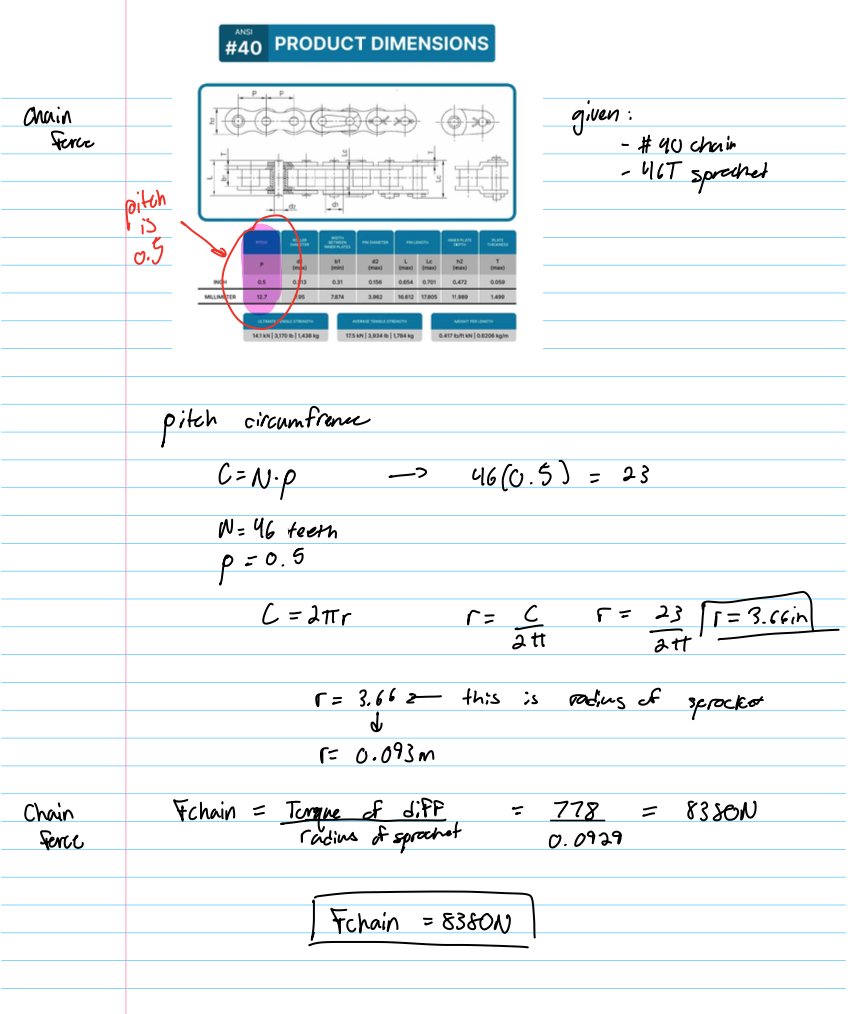 ANSI
#40 PRODUCT DIMENSIONS
Chain
force
given:
- #40 chain
- 46T sprocket
pitch
is
0.5
P P
PITCH ROLLER DIAMETER WIDTH BETWEEN INNER PLATES PIN DIAMETER PIN LENGTH INNER PLATE DEPTH PLATE THICKNESS
P d1 (max) b1 (min) d2 (max) L (max) Lc (max) h2 (max) T (max)
INCH 0.5 0.313 0.31 0.156 0.654 0.701 0.472 0.059
MILLIMETER 12.7 7.95 7.874 3.962 16.612 17.805 11.989 1.499
ULTIMATE TENSILE STRENGTH AVERAGE TENSILE STRENGTH WEIGHT PER LENGTH
14.1 kN | 3,170 lb | 1,438 kg 17.5 kN | 3,934 lb | 1,784 kg 0.417 lb/ft kN | 0.6206 kg/m
pitch circumfrence
C = N·p → 46(0.5) = 23
N = 46 teeth
p = 0.5
C = 2πr r = C/2π r = 23/2π r = 3.66in
r = 3.66 ← this is radius of sprocket
↓
r = 0.093m
Chain
force
Fchain = Torque of diff / radius of sprocket = 778 / 0.0929 = 8380N
Fchain = 8380N